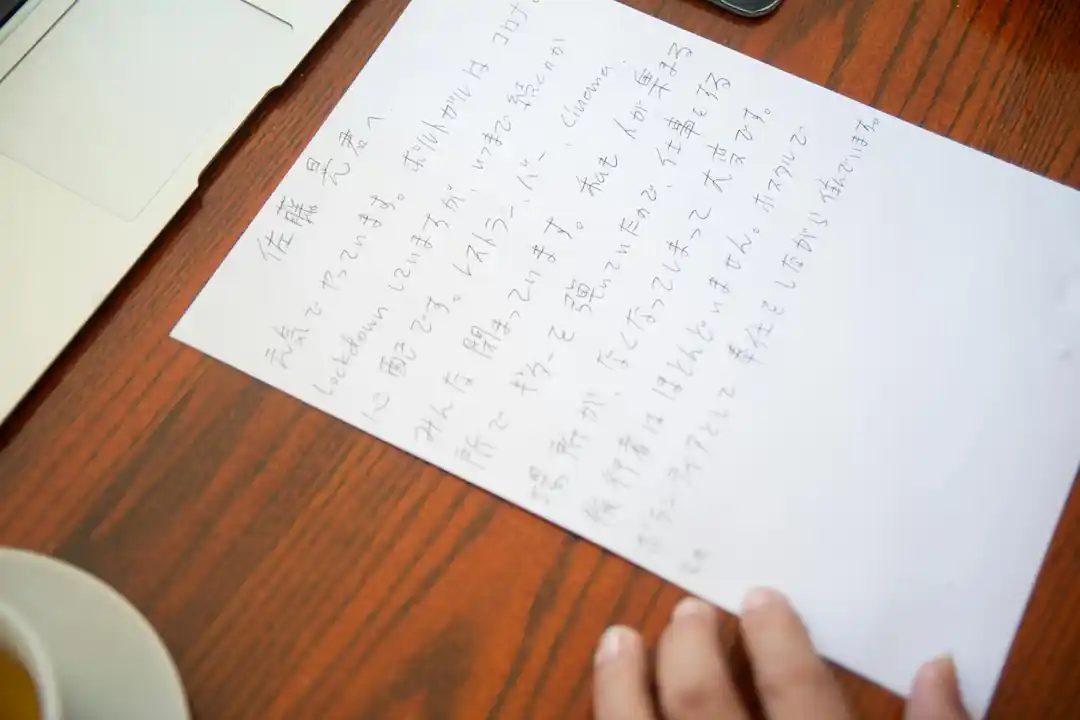 佐藤晃君へ
元気でやっています。ポルトガルは コロナで
Lockdownしていますが、いつまで続くのか
心配です。レストラン、バー、Cinema、
みんな閉まっています。私も 人が集まる
所で ギターを弾いていたので、仕事をする
場所が、なくなってしまって 大変です。
旅行者はほとんどいません。ホステルで
ボランティアとして 奉仕をしながら 住んでいます。